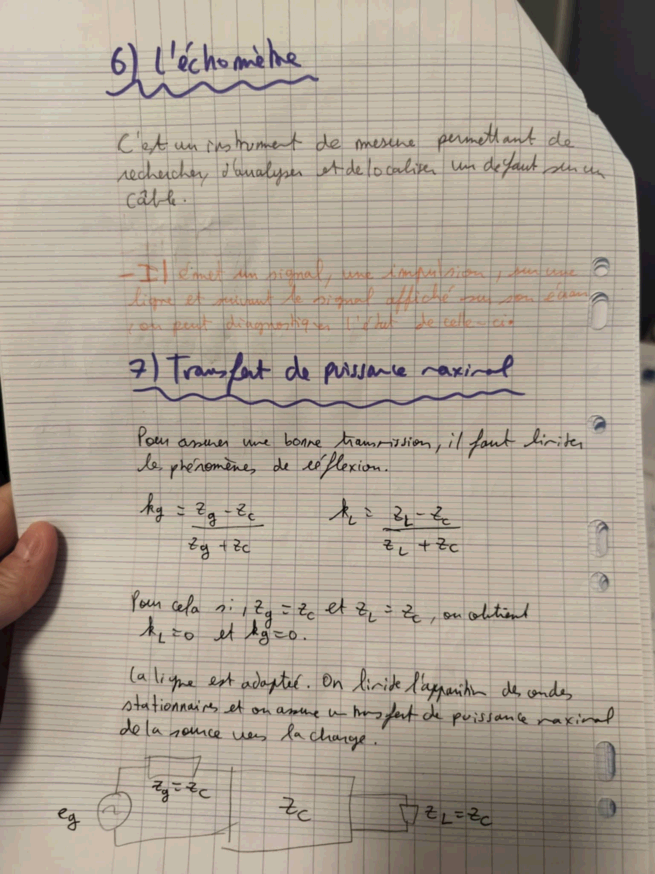 6) L'échomètre
C'est un instrument de mesure permettant de
rechercher, d'analyser et de localiser un défaut sur un
câble.
- Il émet un signal, une impulsion, sur une
ligne et suivant le signal affiché sur son écran
, on peut diagnostiquer l'état de celle-ci.
7) Transfert de puissance maximal
Pour assurer une bonne transmission, il faut limiter
les phénomènes de réflexion.
kg = (Zg - Zc) / (Zg + Zc)    kL = (ZL - Zc) / (ZL + Zc)
Pour cela si, Zg = Zc et ZL = Zc, on obtient
kL = 0 et kg = 0.
La ligne est adaptée. On limite l'apparition des ondes
stationnaires et on assure un transfert de puissance maximal
de la source vers la charge.
Zg = Zc
eg
Zc
ZL = Zc